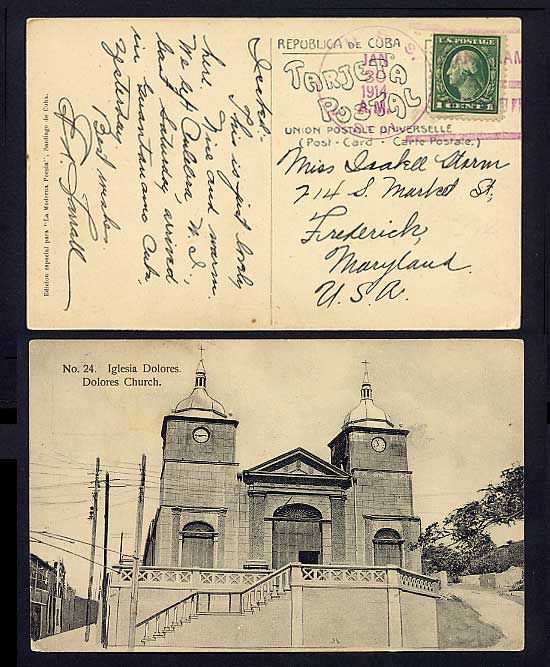 REPÚBLICA DE CUBA
TARJETA
POSTAL
UNION POSTALE UNIVERSELLE
(Post - Card · Carte Postale.)
JAN
30
1914
A.M.
U.S. POSTAGE
1 CENT 1
Miss Isabell Storm
214 S. Market St,
Frederick,
Maryland.
U.S.A.
This is just lovely
here. Fine and warm.
We left Culebra,
last Saturday, arrived
in Guantanamo Cuba,
yesterday.
Best wishes.
Edicion especial para "La Moderna Poesia", Santiago de Cuba.
No. 24. Iglesia Dolores.
Dolores Church.